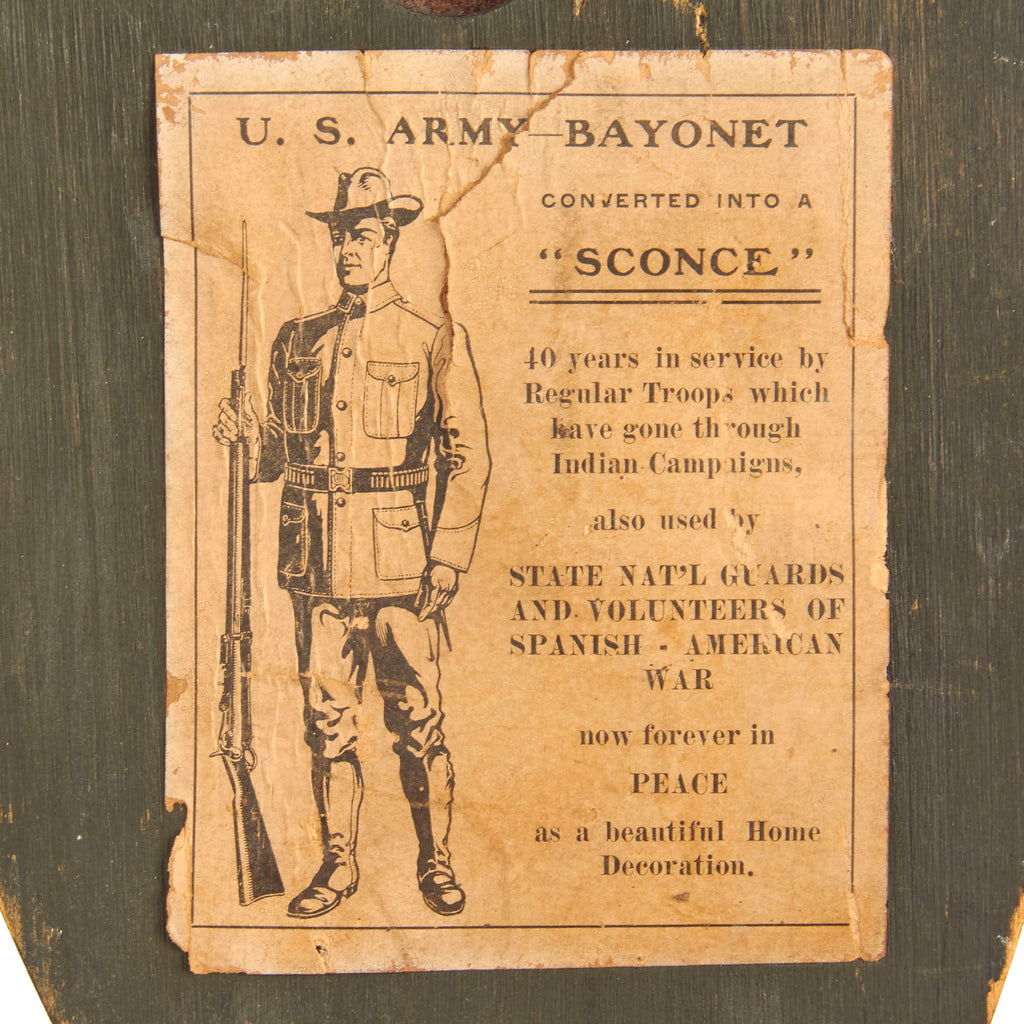 U. S. ARMY—BAYONET
CONVERTED INTO A
“SCONCE”
40 years in service by
Regular Troops which
have gone through
Indian Campaigns,
also used by
STATE NAT’L GUARDS
AND VOLUNTEERS OF
SPANISH - AMERICAN
WAR
now forever in
PEACE
as a beautiful Home
Decoration.